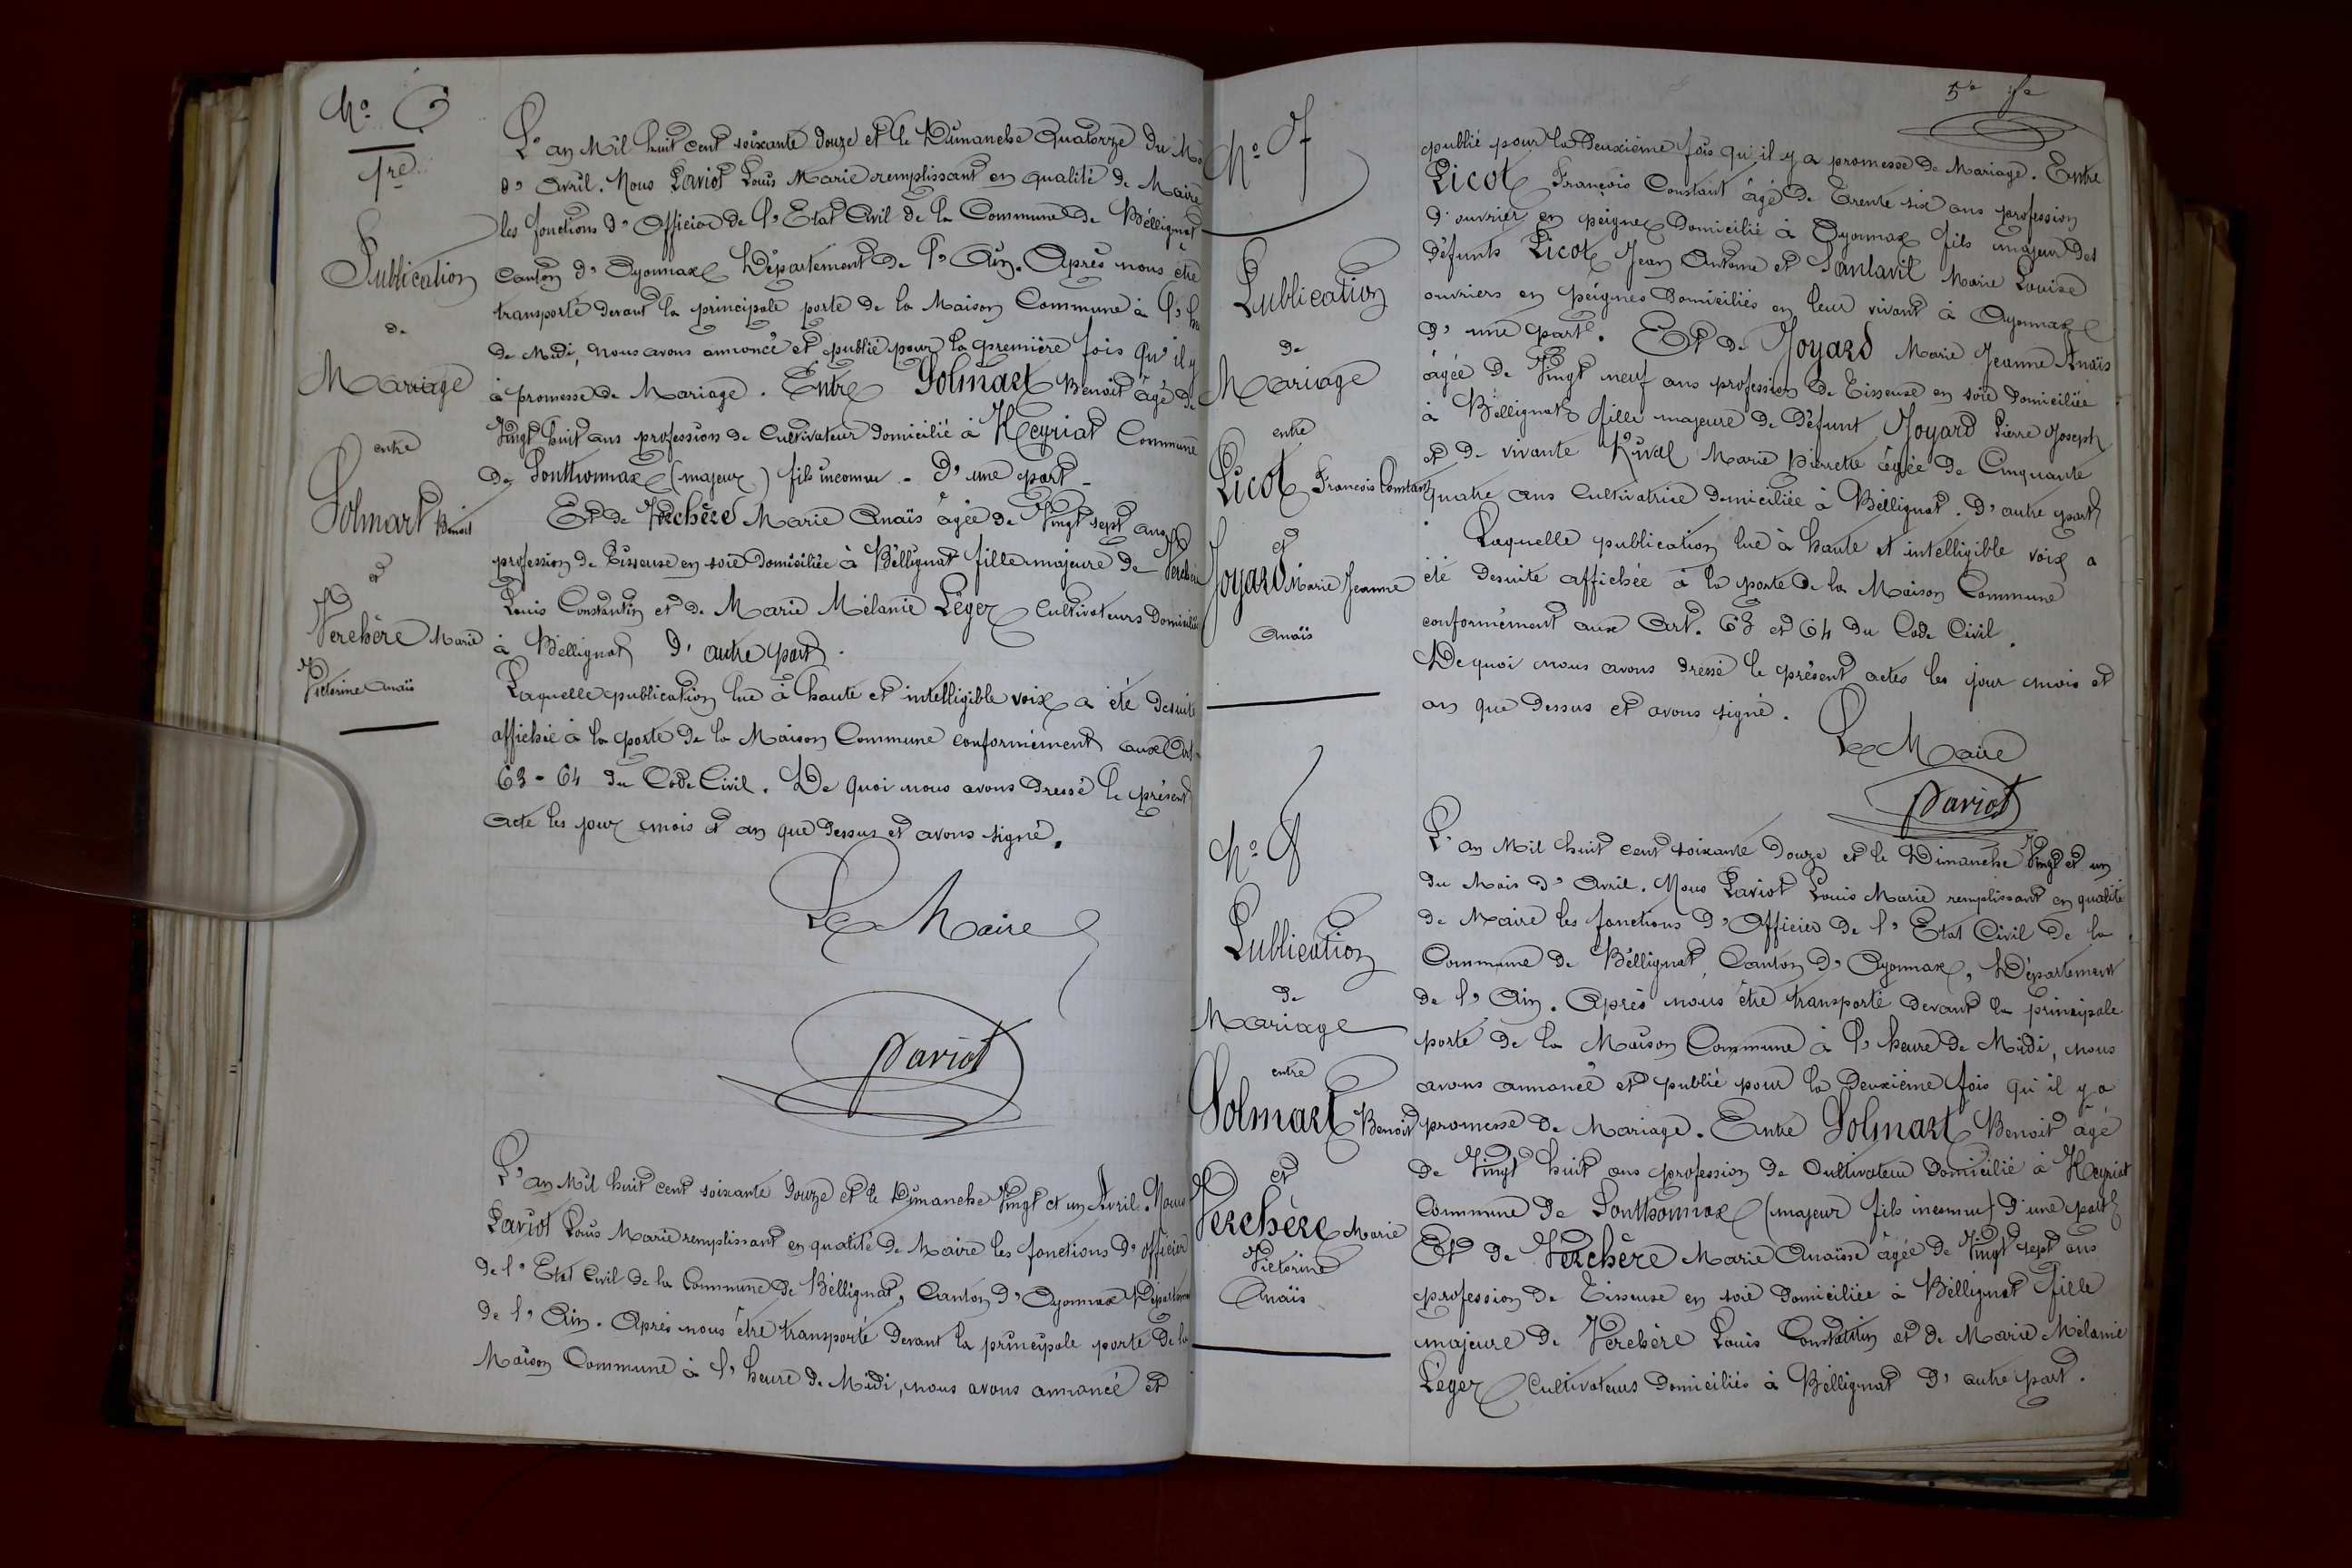 No 6
1re
Publication
de
Mariage
entre
Solmart Benoit
et
Verchère Marie
Victorine Anaïs
L'an Mil huit cent soixante douze et le Dimanche Quatorze du Mo
d'Avril. Nous Paviot Louis Marie remplissant en qualité de Maire
les fonctions d'Officier de l'Etat Civil de la Commune de Béllignat
Canton d'Oyonnax Département de l'Ain. Après nous être
transporté devant la principale porte de la Maison Commune à l'h
de Midi, nous avons annoncé et publié pour la première fois qu'il y
à promesse de Mariage. Entre Solmart Benoit âgé de
Vingt huit ans profession de Cultivateur domicilié à Heyriat Commune
de Sonthonnax (majeur) fils inconnu - d'une part -
Et de Verchère Marie Anaïs âgée de Vingt sept ans
profession de Tisseuse en soie domiciliée à Béllignat fille majeure de Verchère
Louis Constantin et de Marie Mélanie Léger Cultivateurs domiciliés
à Béllignat d'autre part.
Laquelle publication lue à haute et intelligible voix a été desuite
affichée à la porte de la Maison Commune conformément aux Art.
63 - 64 du Code Civil. De quoi nous avons dressé le présent
acte les jour mois et an que dessus et avons signé.
Le Maire
Paviot
L'an Mil huit cent soixante douze et le Dimanche Vingt et un Avril. Nous
Paviot Louis Marie remplissant en qualité de Maire les fonctions d'officier
de l'Etat Civil de la Commune de Béllignat, Canton d'Oyonnax Département
de l'Ain. Après nous être transporté devant la principale porte de la
Maison Commune à l'heure de Midi, nous avons annoncé et
No 7
Publication
de
Mariage
entre
Picot François Constant
et
Joyard Marie Jeanne
Anaïs
publié pour la Deuxième fois qu'il y a promesse de Mariage. Entre
Picot François Constant âgé de Trente six ans profession
d'ouvrier en peignes Domicilié à Oyonnax fils majeur des
défunts Picot Jean Antoine et Marie Louise
ouvriers en peignes domiciliés en leur vivant à Oyonnax
d'une part. Et de Joyard Marie Jeanne Anaïs
âgée de Vingt neuf ans profession de Tisseuse en soie domiciliée
à Béllignat fille majeure de défunt Joyard Pierre Joseph
et de vivante Marie Pierrette âgée de Cinquante
quatre ans Cultivatrice domiciliée à Béllignat. d'autre part
Laquelle publication lue à haute et intelligible voix a
été desuite affichée à la porte de la Maison Commune
conformément aux Art. 63 et 64 du Code Civil.
De quoi nous avons dressé le présent actes les jour mois et
an que dessus et avons signé.
Le Maire
Paviot
No 8
Publication
de
Mariage
entre
Solmart Benoit
et
Verchère Marie
Victorine
Anaïs
L'an Mil huit cent soixante douze et le Dimanche Vingt et un
du Mois d'Avril. Nous Paviot Louis Marie remplissant en qualité
de Maire les fonctions d'Officier de l'Etat Civil de la
Commune de Béllignat, Canton d'Oyonnax, Département
de l'Ain. Après nous être transporté devant la principale
porte de la Maison Commune à l'heure de Midi, nous
avons annoncé et publié pour la Deuxième fois qu'il y a
promesse de Mariage. Entre Solmart Benoit âgé
de Vingt huit ans profession de Cultivateur domicilié à Heyriat
Commune de Sonthonnax (majeur fils inconnu) d'une part
Et de Verchère Marie Anaïsse âgée de Vingt sept ans
profession de Tisseuse en soie domiciliée à Béllignat fille
majeure de Verchère Louis Constantin et de Marie Mélanie
Léger Cultivateurs domiciliés à Béllignat d'autre part.